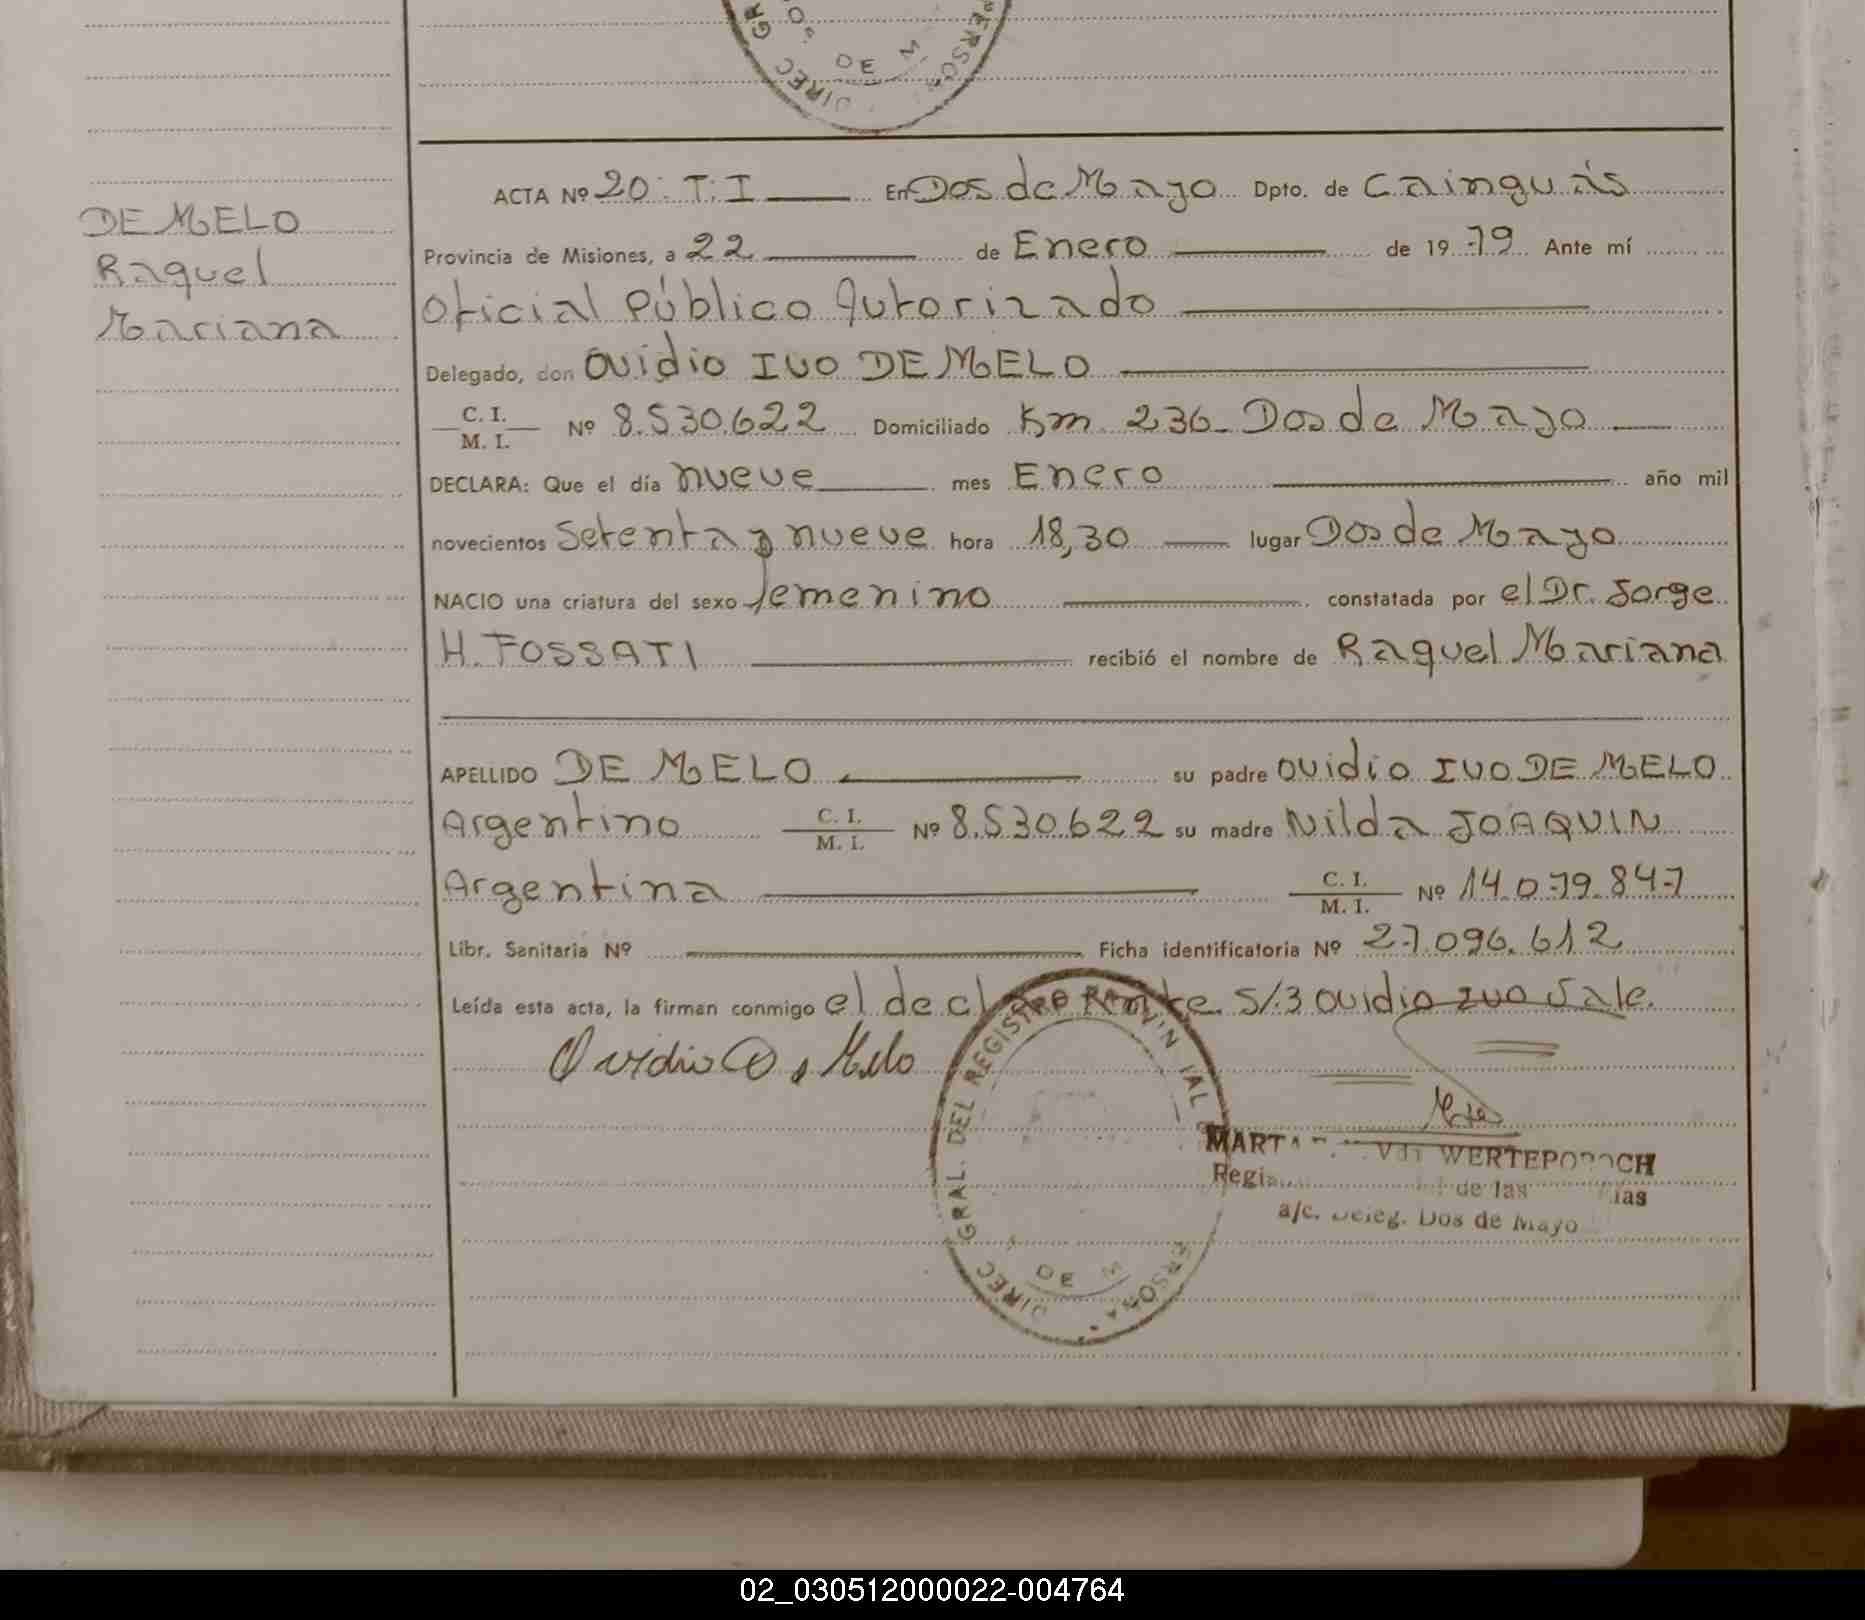 DIREC GR
OS
DE M
PERSON
ACTA Nº 20: T: I En Dos de Mayo Dpto. de Cainguás
DE MELO
Raquel
Mariana
Provincia de Misiones, a 22 de Enero de 19 79 Ante mí
Oficial Público Autorizado
Delegado, don Ovidio IVO DE MELO
C. I.
M. I. Nº 8.530.622 Domiciliado Km 236_ Dos de Mayo
DECLARA: Que el día nueve mes Enero año mil
novecientos Setenta y nueve hora 18,30 lugar Dos de Mayo
NACIO una criatura del sexo femenino constatada por el Dr. Jorge
H. FOSSATI recibió el nombre de Raquel Mariana
APELLIDO DE MELO su padre Ovidio IVO DE MELO
Argentino C. I.
M. I. Nº 8.530.622 su madre Nilda JOAQUIN
Argentina C. I.
M. I. Nº 14.079.847
Libr. Sanitaria Nº Ficha identificatoria Nº 27.096.612
Leída esta acta, la firman conmigo el declarante. S/3 Ovidio IVO Vale.
Ovidio De Melo
DIREC GRAL. DEL REGISTRO PROVINCIAL
DE M
MARTA WERTEPOROCH
de las
a/c. Deleg. Dos de Mayo
02_030512000022-004764